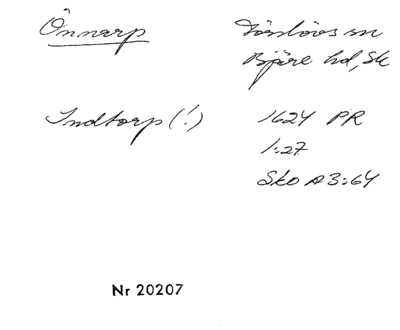 Önnarp
Förslövs sn
Bjäre hd, Sk
Indtorp (!)
1624 PR
1:27
Sko A3:64
Nr 20207